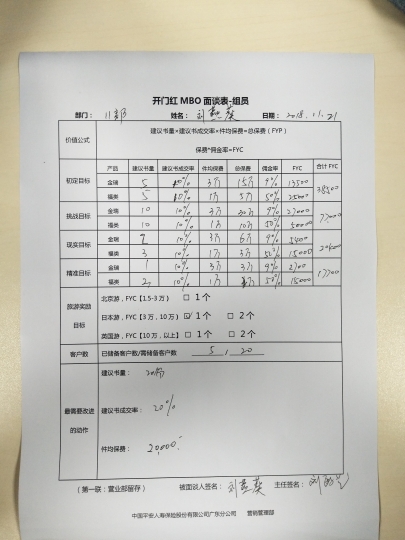 开门红 MBO 面谈表-组员
部门： 姓名：刘 日期：2018.11.21
价值公式 建议书量*建议书成交率*件均保费=总保费（FYP）
保费*佣金率=FYC
产品 建议书量 建议书成交率 件均保费 总保费 佣金率 FYC 合计 FYC
初定目标 金瑞 5 10% 3万 15万 9% 13500 38500
福类 5 10% 1万 5万 50% 25000
挑战目标 金瑞 10 10% 3万 30万 9% 27000 77000
福类 10 10% 1万 10万 50% 50000
现实目标 金瑞 2 10% 3万 6万 9% 5400 20400
福类 3 10% 1万 3万 50% 15000
精准目标 金瑞 1 10% 3万 3万 9% 2700 17700
福类 2 10% 1万 50% 15000
旅游奖励目标 北京游，FYC【1.5-3 万】 □ 1 个
日本游，FYC【3 万，10 万】 ☑ 1 个 □ 2 个
英国游，FYC【10 万，以上】 □ 1 个 □ 2 个
客户数 已储备客户数/需储备客户数 5 / 20
最需要改进的动作 建议书量： 20
建议书成交率： 20%
件均保费： 20,000
（第一联：营业部留存） 被面谈人签名：刘 主任签名：刘
中国平安人寿保险股份有限公司广东分公司 营销管理部